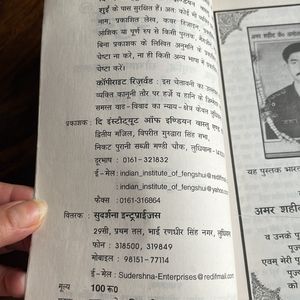 शुई के पास सुरक्षित हैं। अतः कोई भी
नाम, प्रकाशित लेख, कवर डिजाइन,
आंशिक या पूर्ण रुप से किसी पुस्तक,
बिना प्रकाशक के लिखित अनुमति के
चेष्टा ना करें, ना ही किसी अन्य
चेष्टा करें।
कॉपीराईट रिजर्वड : इस चेतावनी का
व्यक्ति कानूनी तौर पर हर्ज व हानि के
समस्त वाद - विवाद का न्याय-क्षेत्र केवल
प्रकाशक : दि इंस्टीट्यूट ऑफ इण्डियन वास्तु
द्वितीय मंजिल, विपरीत गुरुद्वारा सिंह सभा,
निकट पुरानी सब्जी मण्डी चौक, लुधियाना
दूरभाष : 0161-321832
ई - मेल : indian_institute_of_fengshui@rediffmail.com
indian_institute_of_fengshui@yahoo.com
फेक्स 0161-316864
वितरक : सुदर्शना इन्ट्रप्राईजस
29सी, प्रथम तल, भाई रणधीर सिंह नगर,
फोन : 318500, 319849
मोबाइल : 98151-77114
ई - मेल : Sudershna-Enterprises@rediffmail.com
मूल्य 100 रू०
अमर शहीद
यह पुस्तक
अमर शहीद
व उनके
एवम् मेरी